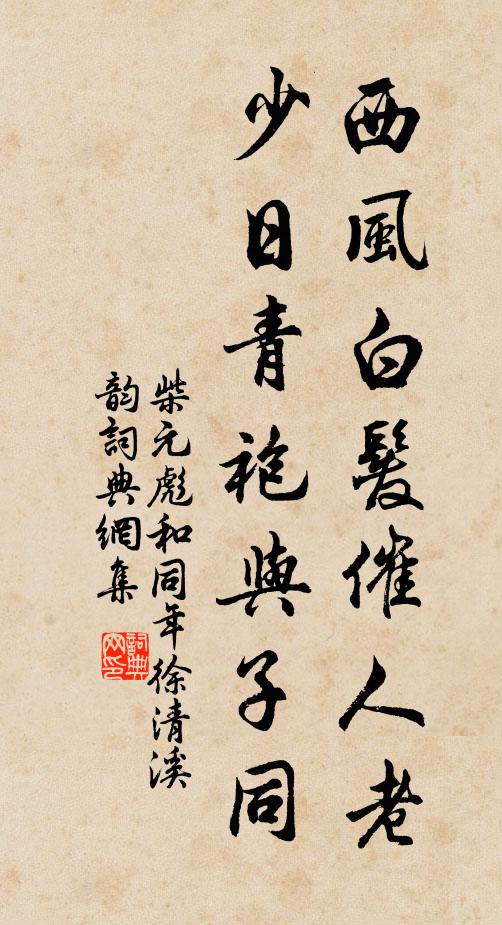 西風白髮催人老
少日青袍與子同
柴元彪和同年徐清溪
韵詞典網集
詞典网印